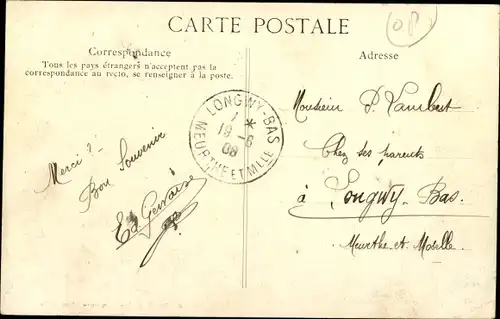 CARTE POSTALE
Correspondance
Tous les pays étrangers n'acceptent pas la
correspondance au recto, se renseigner à la poste.
Adresse
O.P
LONGWY-BAS
1 *
19 - 6
08
MEURTHE ET MLLE
Merci ?
Bon Souvenir
Ed Gervaise
Monsieur P. Lambert
Chez ses parents
à Longwy-Bas.
Meurthe-et-Moselle.